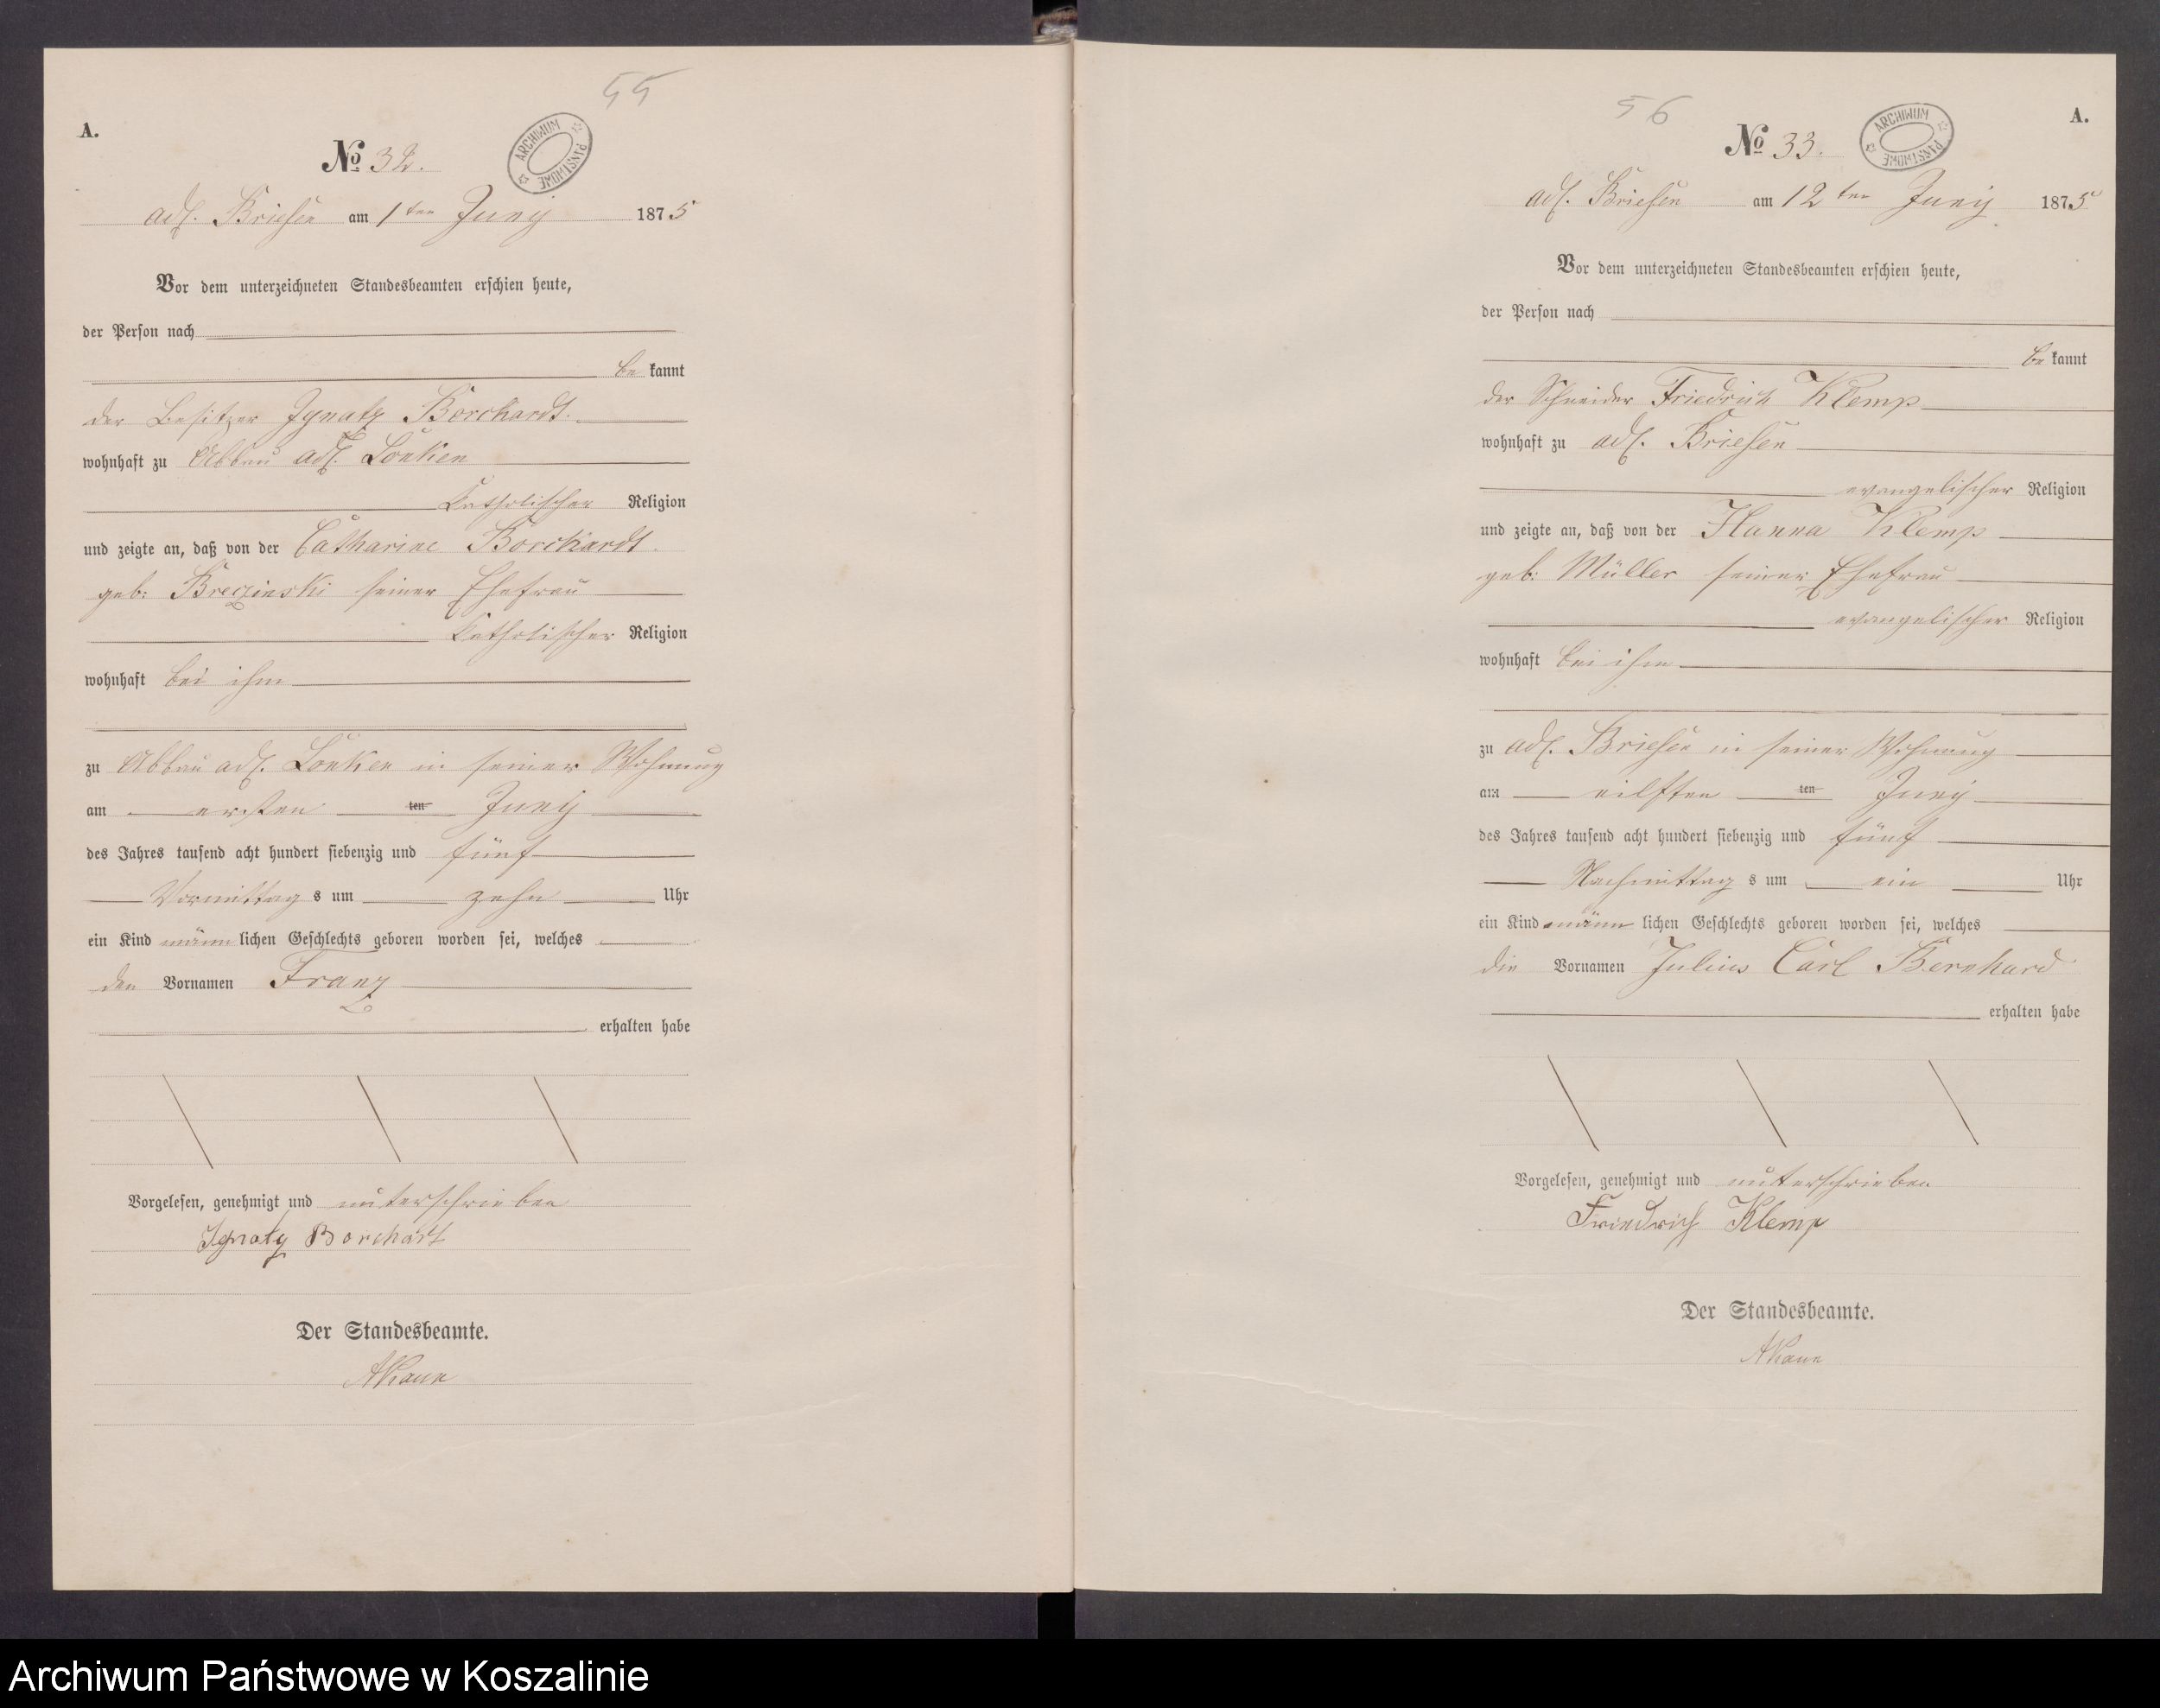 55
A.
No 32.
ARCHIWUM PAŃSTWOWE
adl. Briesen am 1ten Juny 1875
Vor dem unterzeichneten Standesbeamten erschien heute,
der Person nach
bekannt
der Besitzer Ignatz Borchardt.
wohnhaft zu Abbau adl. Lonken
katholischer Religion
und zeigte an, daß von der Catharine Borchardt.
geb: Brezinski seiner Ehefrau
katholischer Religion
wohnhaft bei ihm
zu Abbau adl. Lonken in seiner Wohnung
am ersten ten Juny
des Jahres tausend acht hundert siebenzig und fünf
Vormittags um zehn Uhr
ein Kind männlichen Geschlechts geboren worden sei, welches
den Vornamen Franz
erhalten habe
Vorgelesen, genehmigt und unterschrieben
Ignatz Borchart
Der Standesbeamte.
56
A.
No 33.
ARCHIWUM PAŃSTWOWE
adl. Briesen am 12ten Juny 1875
Vor dem unterzeichneten Standesbeamten erschien heute,
der Person nach
bekannt
der Schneider Friedrich Klemp
wohnhaft zu adl. Briesen
evangelischer Religion
und zeigte an, daß von der Hanna Klemp
geb: Müller seiner Ehefrau
evangelischer Religion
wohnhaft bei ihm
zu adl. Briesen in seiner Wohnung
am eilften ten Juny
des Jahres tausend acht hundert siebenzig und fünf
Nachmittags um ein Uhr
ein Kind männlichen Geschlechts geboren worden sei, welches
die Vornamen Julius Carl Bernhard
erhalten habe
Vorgelesen, genehmigt und unterschrieben
Friedrich Klemp
Der Standesbeamte.
Archiwum Państwowe w Koszalinie